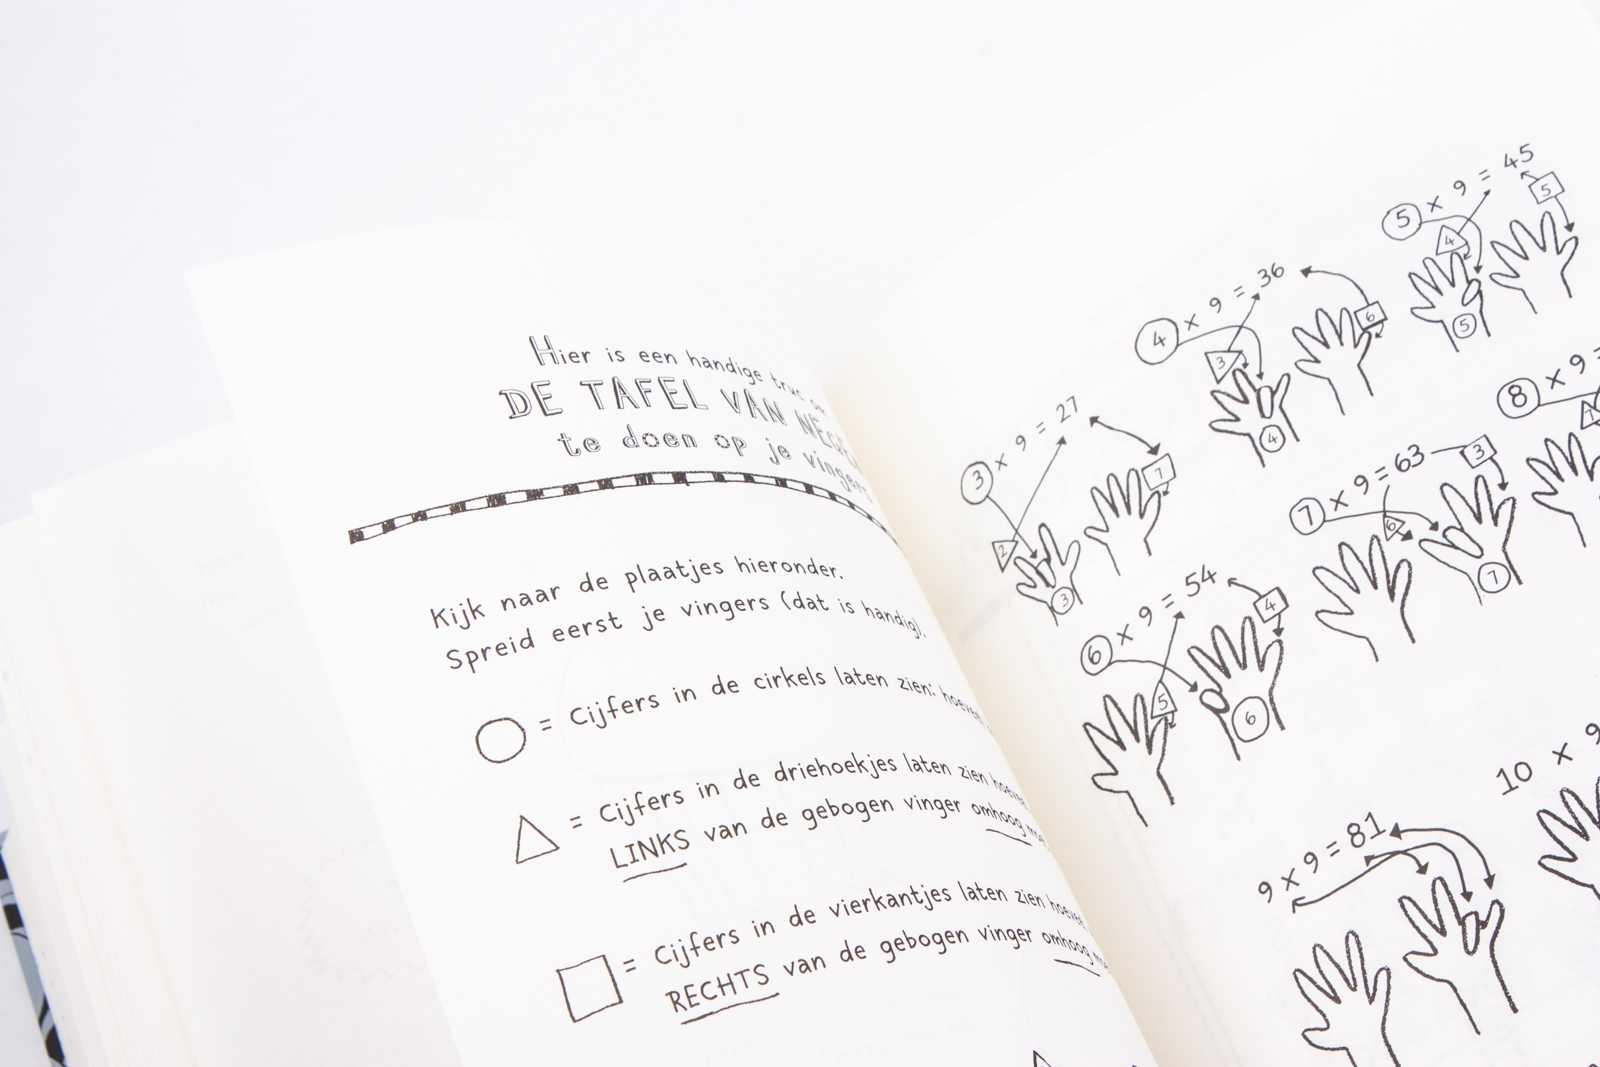 Hier is een handige truc om
DE TAFEL VAN NEGEN
te doen op je vingers
Kijk naar de plaatjes hieronder.
Spreid eerst je vingers (dat is handig).
= Cijfers in de cirkels laten zien:
= Cijfers in de driehoekjes laten zien
LINKS van de gebogen vinger omhoog
= Cijfers in de vierkantjes laten zien
RECHTS van de gebogen vinger omhoog
3 x 9 = 27
7
2
3
4 x 9 = 36
6
3
4
5 x 9 = 45
5
4
5
6 x 9 = 54
4
5
6
7 x 9 = 63
3
6
7
8 x 9 =
7
9 x 9 = 81
10 x 9